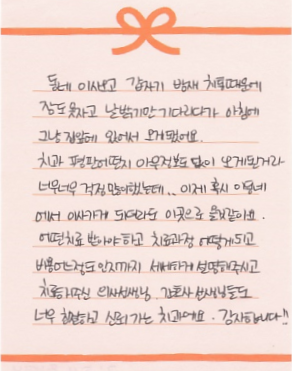 동네 이사오고 갑자기 밤새 치통때문에
잠도 못자고 날밝기만 기다리다가 아침에
그냥 집앞에 있어서 오게됐어요.
치과 평판어떤지 아무정보도 없이 오게된거라
너무너무 걱정많이했는데.. 이제 혹시 이동네
에서 이사가게 되더라도 이곳으로 올것같아요.
어떤치료 받아야하고 치료과정 어떻게되고
비용어느정도인지까지 세세하게 설명해주시고
치료해주신 의사선생님, 간호사선생님들도
너무 친절하고 신뢰가는 치과에요. 감사합니다!!